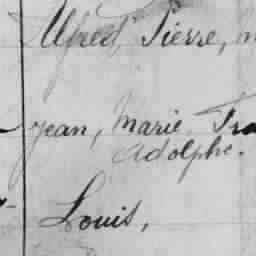 Alfred, Pierre,
Jean, Marie,
Adolphe.
Louis,